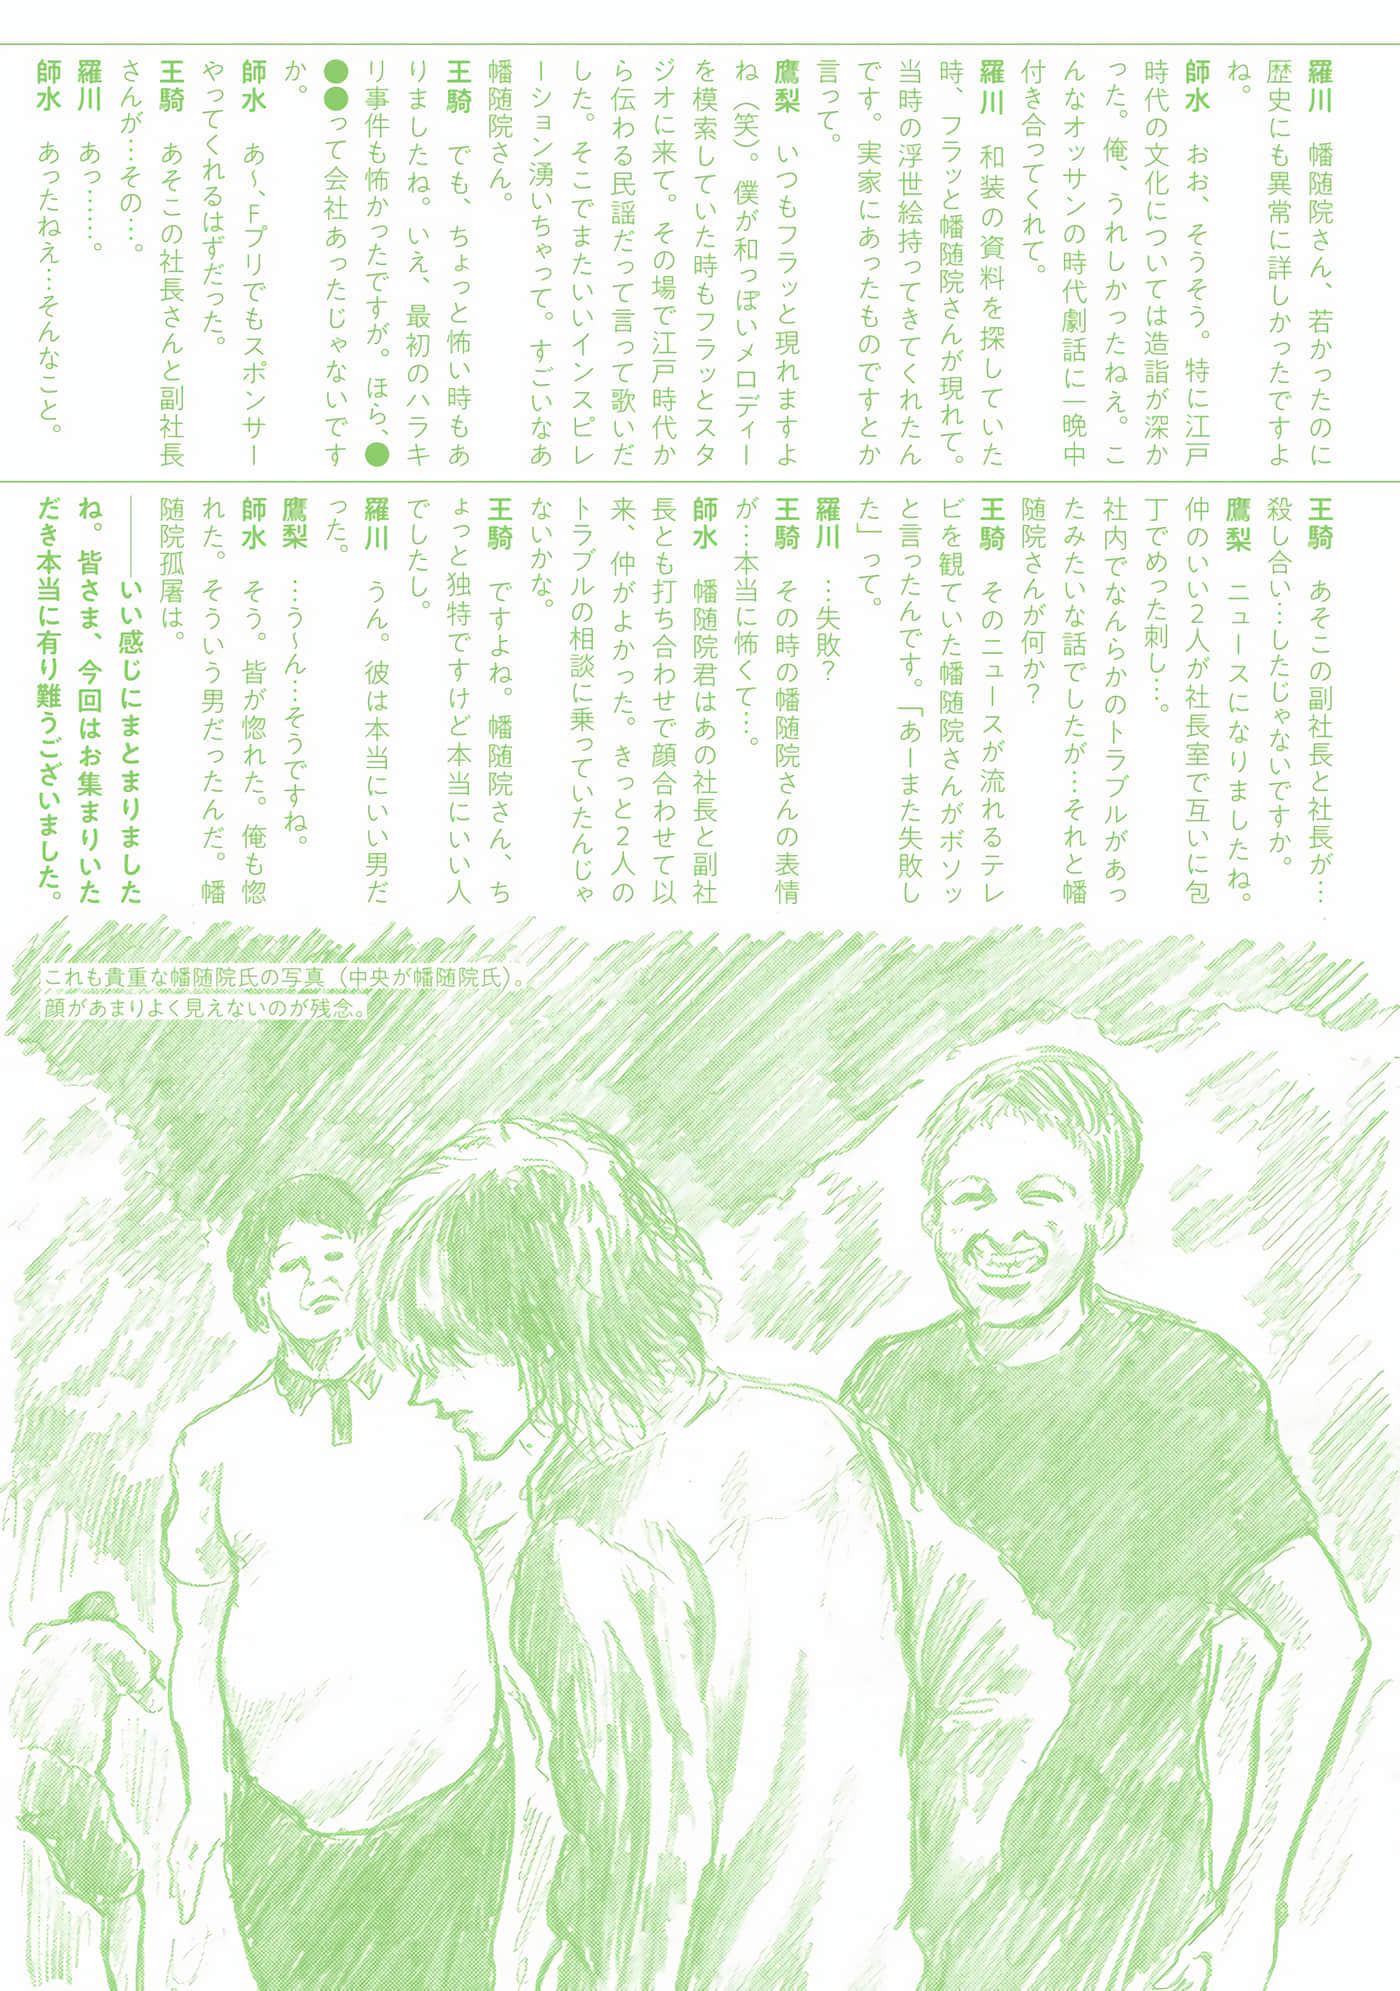 羅川　幡随院さん、若かったのに
歴史にも異常に詳しかったですよ
ね。
師水　おお、そうそう。特に江戸
時代の文化については造詣が深か
った。俺、うれしかったねえ。こ
んなオッサンの時代劇話に一晩中
付き合ってくれて。
羅川　和装の資料を探していた
時、フラッと幡随院さんが現れて。
当時の浮世絵持ってきてくれたん
です。実家にあったものですとか
言って。
鷹梨　いつもフラッと現れますよ
ね（笑）。僕が和っぽいメロディー
を模索していた時もフラッとスタ
ジオに来て。その場で江戸時代か
ら伝わる民謡だって言って歌いだ
した。そこでまたいいインスピレ
ーション湧いちゃって。すごいなあ
幡随院さん。
王騎　でも、ちょっと怖い時もあ
りましたね。いえ、最初のハラキ
リ事件も怖かったですが。ほら、●
●●って会社あったじゃないです
か。
師水　あ〜、Fプリでもスポンサー
やってくれるはずだった。
王騎　あそこの社長さんと副社長
さんが…その…。
羅川　あっ……。
師水　あったねえ…そんなこと。
王騎　あそこの副社長と社長が…
殺し合い…したじゃないですか。
鷹梨　ニュースになりましたね。
仲のいい2人が社長室で互いに包
丁でめった刺し…。
社内でなんらかのトラブルがあっ
たみたいな話でしたが…それと幡
随院さんが何か？
王騎　そのニュースが流れるテレ
ビを観ていた幡随院さんがボソッ
と言ったんです。「あーまた失敗し
た」って。
羅川　…失敗？
王騎　その時の幡随院さんの表情
が…本当に怖くて…。
師水　幡随院君はあの社長と副社
長とも打ち合わせで顔合わせて以
来、仲がよかった。きっと2人の
トラブルの相談に乗っていたんじゃ
ないかな。
王騎　ですよね。幡随院さん、ち
ょっと独特ですけど本当にいい人
でしたし。
羅川　うん。彼は本当にいい男だ
った。
鷹梨　…う〜ん…そうですね。
師水　そう。皆が惚れた。俺も惚
れた。そういう男だったんだ。幡
随院孤屠は。
――いい感じにまとまりました
ね。皆さま、今回はお集まりいた
だき本当に有り難うございました。
これも貴重な幡随院氏の写真（中央が幡随院氏）。
顔があまりよく見えないのが残念。